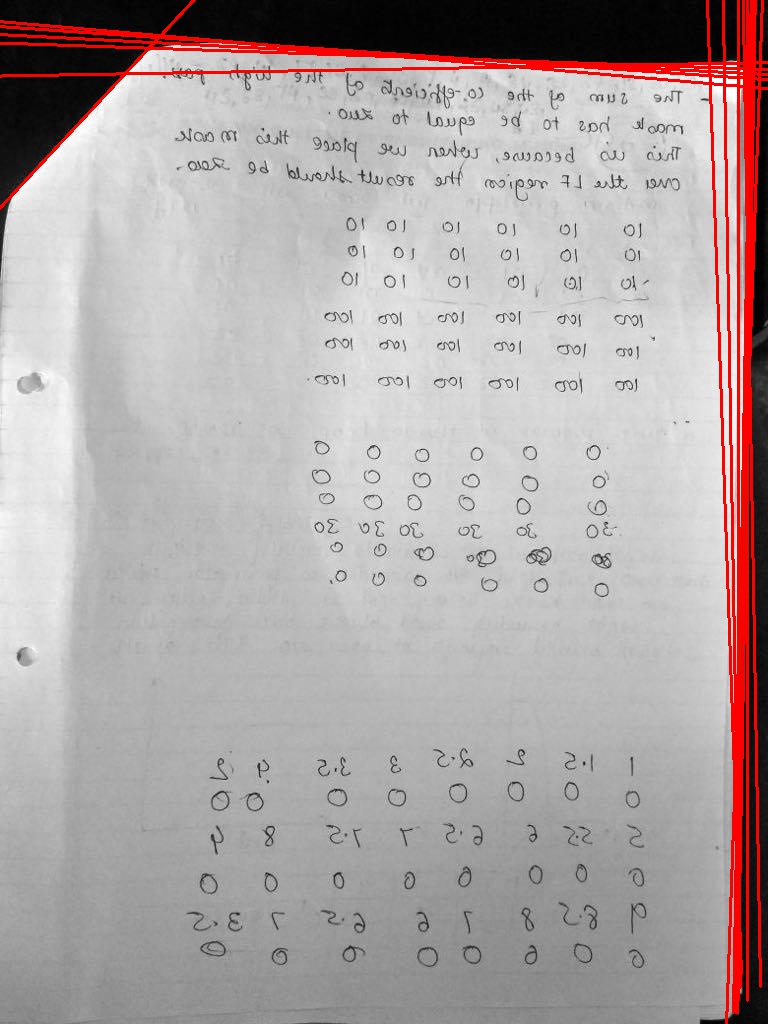 - The sum of the co-efficients of the high pass
mask has to be equal to zero.
This is because, when we place this mask
over the LF region the result should be zero.
10 10 10 10 10 10
10 10 10 10 10 10
10 10 10 10 10 10
100 100 100 100 100 100
100 100 100 100 100 100
100 100 100 100 100 100
0 0 0 0 0 0
0 0 0 0 0 0
0 0 0 0 0 0
30 30 30 30 30 30
0 0
0 0 0 0 0 0
1 1.5 2 2.5 3 3.5 4 2
0 0 0 0 0 0 0 0
5 5.5 6 6.5 7 7.5 8 4
0 0 0 0 0 0 0 0
9 8.5 8 7 6 6.5 7 3.5
0 0 0 0 0 0 0 0